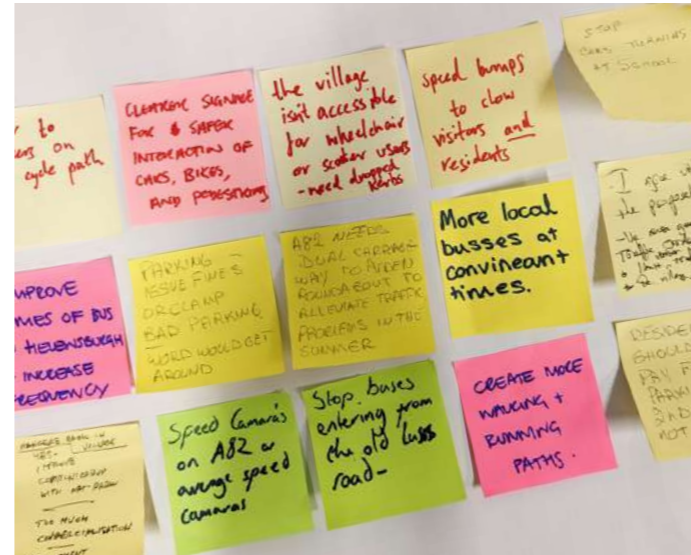 to
on
cycle path
CLEARER SIGNAGE
FOR SAFER
INTERACTION OF
CARS, BIKES,
AND PEDESTRIANS
the village
isn't accessible
for wheelchair
or scooter users
- need dropped
kerbs
speed bumps
to clow
visitors and
residents
STOP
CARS TURNING
AT SCHOOL
IMPROVE
TIMES OF BUS
HELENSBURGH
INCREASE
FREQUENCY
PARKING -
ISSUE FINES
OR CLAMP
BAD PARKING
- WORD WOULD GET
AROUND
A82 NEEDS
DUAL CARRIAGE
WAY TO ARDEN
ROUNDABOUT TO
ALLEVIATE TRAFFIC
PROBLEMS IN THE
SUMMER
More local
busses at
convineant
times.
- I agree with
the
VILLAGE
YES -
WITH
TOO MUCH
COMMERCIALISATION
Speed Camara's
on A82 or
average speed
Camaras
Stop. buses
entering from
the old Luss
road -
CREATE MORE
WALKING +
RUNNING
PATHS.
SHOULD
PAY
NOT